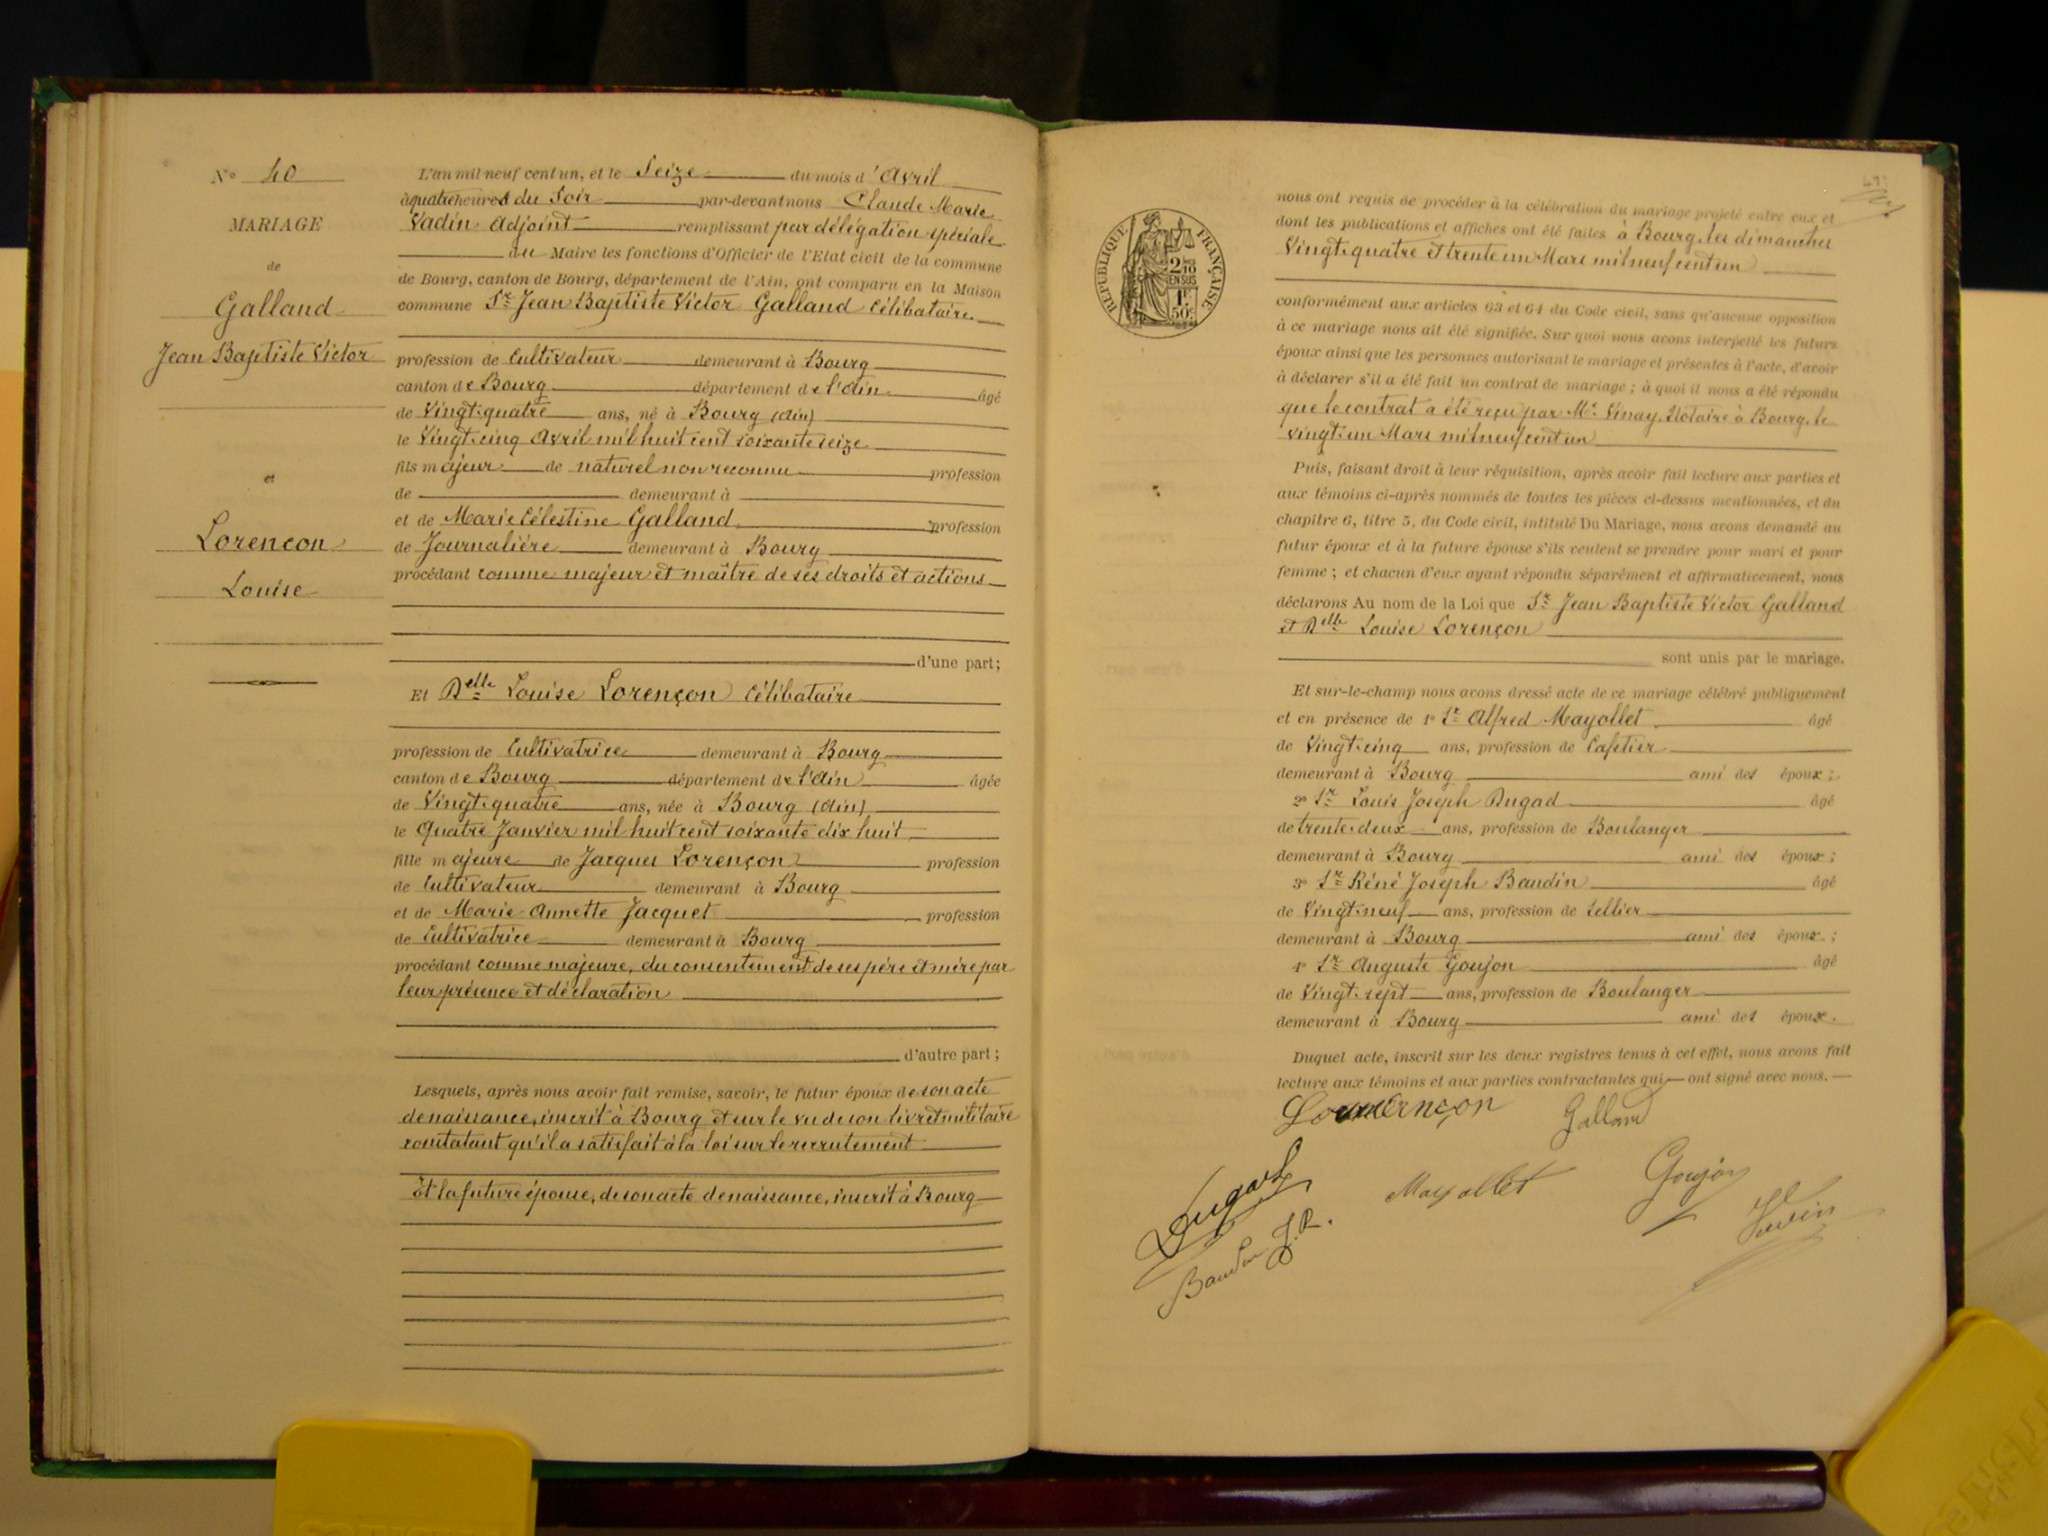 N° 40
MARIAGE
de
Galland
Jean Baptiste Victor
et
Lorençon
Louise
L'an mil neuf cent un, et le Seize du mois d'Avril
à quatre heures du Soir par-devant nous Claude Marie
Vadin Adjoint remplissant par délégation spéciale
du Maire les fonctions d'Officier de l'Etat civil de la commune
de Bourg, canton de Bourg, département de l'Ain, ont comparu en la Maison
commune Sr Jean Baptiste Victor Galland Célibataire
profession de Cultivateur demeurant à Bourg
canton de Bourg département de l'Ain âgé
de Vingt-quatre ans, né à Bourg (Ain)
le Vingt-cinq Avril mil huit cent soixante seize
fils majeur de naturel non reconnu profession
de demeurant à
et de Marie Célestine Galland profession
de Journalière demeurant à Bourg
procédant comme majeur et maître de ses droits et actions
d'une part;
Et Delle Louise Lorençon Célibataire
profession de Cultivatrice demeurant à Bourg
canton de Bourg département de l'Ain âgée
de Vingt-quatre ans, née à Bourg (Ain)
le Quatre Janvier mil huit cent soixante dix huit
fille majeure de Jacques Lorençon profession
de Cultivateur demeurant à Bourg
et de Marie-Annette Jacquet profession
de Cultivatrice demeurant à Bourg
procédant comme majeure, du consentement de ses père et mère par
leur présence et déclaration
d'autre part;
Lesquels, après nous avoir fait remise, savoir, le futur époux de son acte
de naissance, inscrit à Bourg et sur le vu de son livret militaire
constatant qu'il a satisfait à la loi sur le recrutement
Et la future épouse, de son acte de naissance, inscrit à Bourg
RÉPUBLIQUE FRANÇAISE
2/10
EN SUS
1F
50c
nous ont requis de procéder à la célébration du mariage projeté entre eux et
dont les publications et affiches ont été faites à Bourg, les dimanches
Vingt-quatre et trente un Mars mil neuf cent un
conformément aux articles 63 et 64 du Code civil, sans qu'aucune opposition
à ce mariage nous ait été signifiée. Sur quoi nous avons interpellé les futurs
époux ainsi que les personnes autorisant le mariage et présentes à l'acte, d'avoir
à déclarer s'il a été fait un contrat de mariage; à quoi il nous a été répondu
que le contrat a été reçu par Me Vinay, Notaire à Bourg, le
vingt-un Mars mil neuf cent un
Puis, faisant droit à leur réquisition, après avoir fait lecture aux parties et
aux témoins ci-après nommés de toutes les pièces ci-dessus mentionnées, et du
chapitre 6, titre 5, du Code civil, intitulé Du Mariage, nous avons demandé au
futur époux et à la future épouse s'ils veulent se prendre pour mari et pour
femme; et chacun d'eux ayant répondu séparément et affirmativement, nous
déclarons Au nom de la Loi que Sr Jean Baptiste Victor Galland
et Delle Louise Lorençon
sont unis par le mariage.
Et sur-le-champ nous avons dressé acte de ce mariage célébré publiquement
et en présence de 1° Sr Alfred Mayollet âgé
de Vingt-cinq ans, profession de Cafetier
demeurant à Bourg ami des époux;
2° Sr Louis Joseph Dugad âgé
de trente-deux ans, profession de Boulanger
demeurant à Bourg ami des époux;
3° Sr Réné Joseph Baudin âgé
de Vingt-neuf ans, profession de Sellier
demeurant à Bourg ami des époux;
4° Sr Auguste Goujon âgé
de Vingt-sept ans, profession de Boulanger
demeurant à Bourg ami des époux.
Duquel acte, inscrit sur les deux registres tenus à cet effet, nous avons fait
lecture aux témoins et aux parties contractantes qui ont signé avec nous.
Lorençon Galland
Dugad Mayollet Goujon
Baudin J.R. Vadin